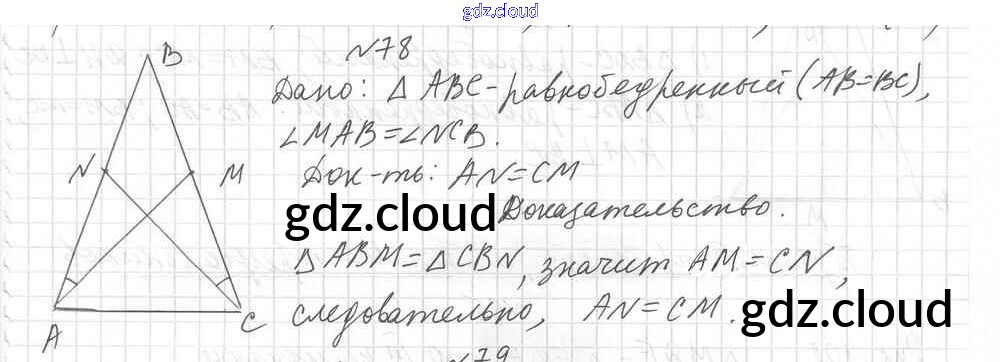 gdz.cloud
№78
Дано: △ ABC - равнобедренный (AB=BC),
∠MAB=∠NCB.
Док-ть: AN=CM
Доказательство.
△ABM=△CBN, значит AM=CN,
следовательно, AN=CM.
B
N
M
A
C
gdz.cloud
gdz.cloud
№79